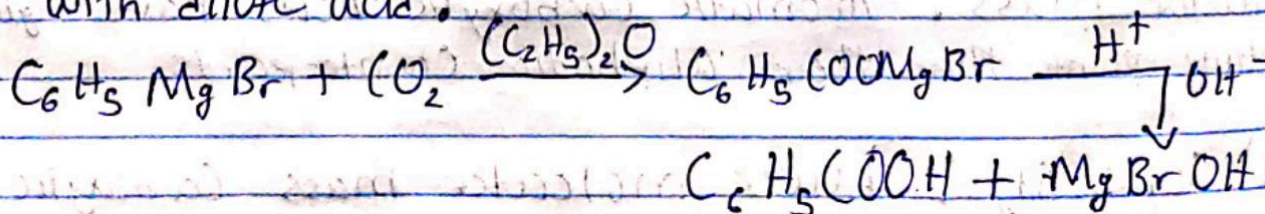 with dilute acid.
C₆H₅MgBr + CO₂ (C₂H₅)₂O → C₆H₅COOMgBr H⁺ OH⁻
C₆H₅COOH + MgBrOH